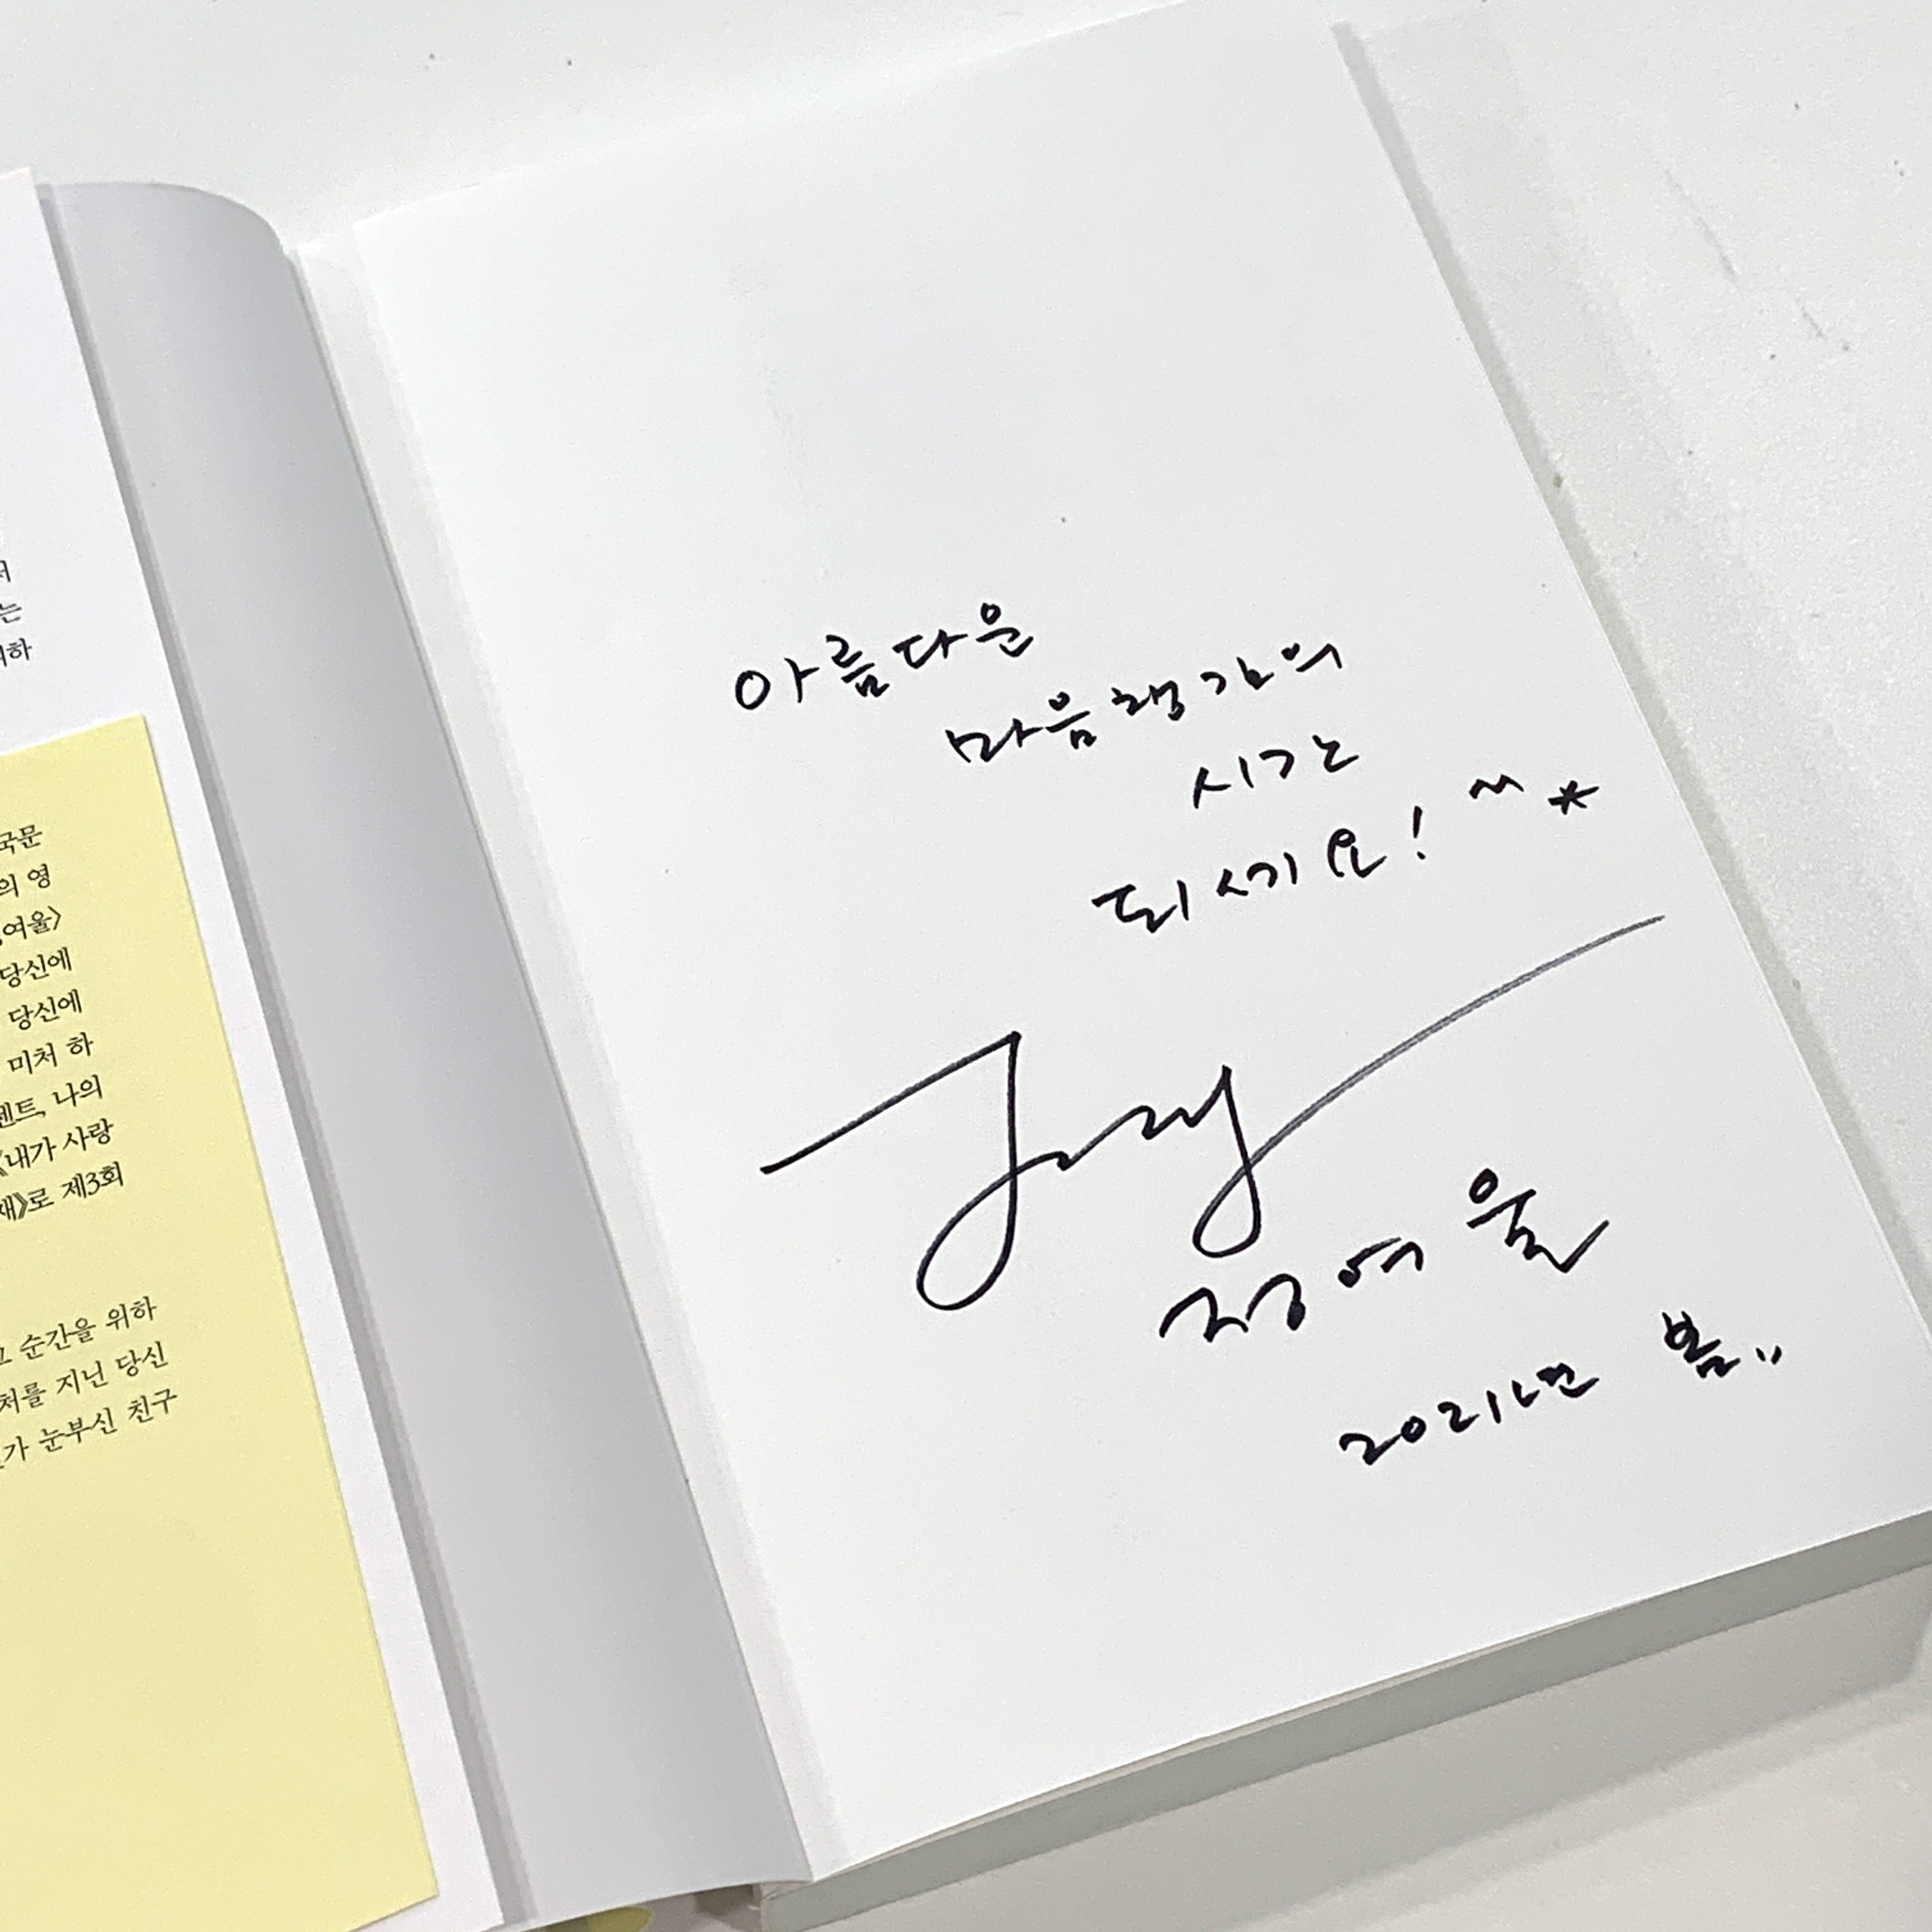 는
국문
의 영
여울〉
당신에
당신에
미처 하
센트, 나의
《내가 사랑
재》로 제3회
순간을 위하
처를 지닌 당신
가 눈부신 친구
아름다운
마음챙김의
시간
되시기요! ~*
정여울
2021년 봄..